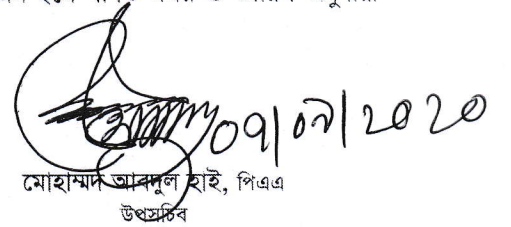 ০৭/০৭/২০২০
মোহাম্মদ আবদুল হাই, পিএএ
উপসচিব